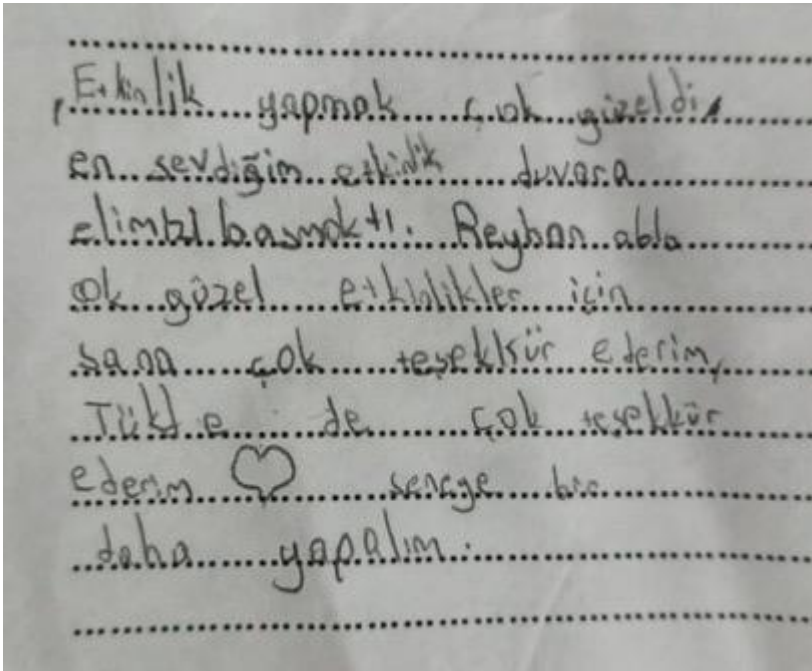 Etkinlik yapmak çok güzeldi,
en sevdiğim etkinlik duvara
elimizi basmaktı. Reyhan abla
çok güzel etkinlikler için
sana çok teşekkür ederim,
de çok teşekkür
ederim ♡ seneye bir
daha yapalım.